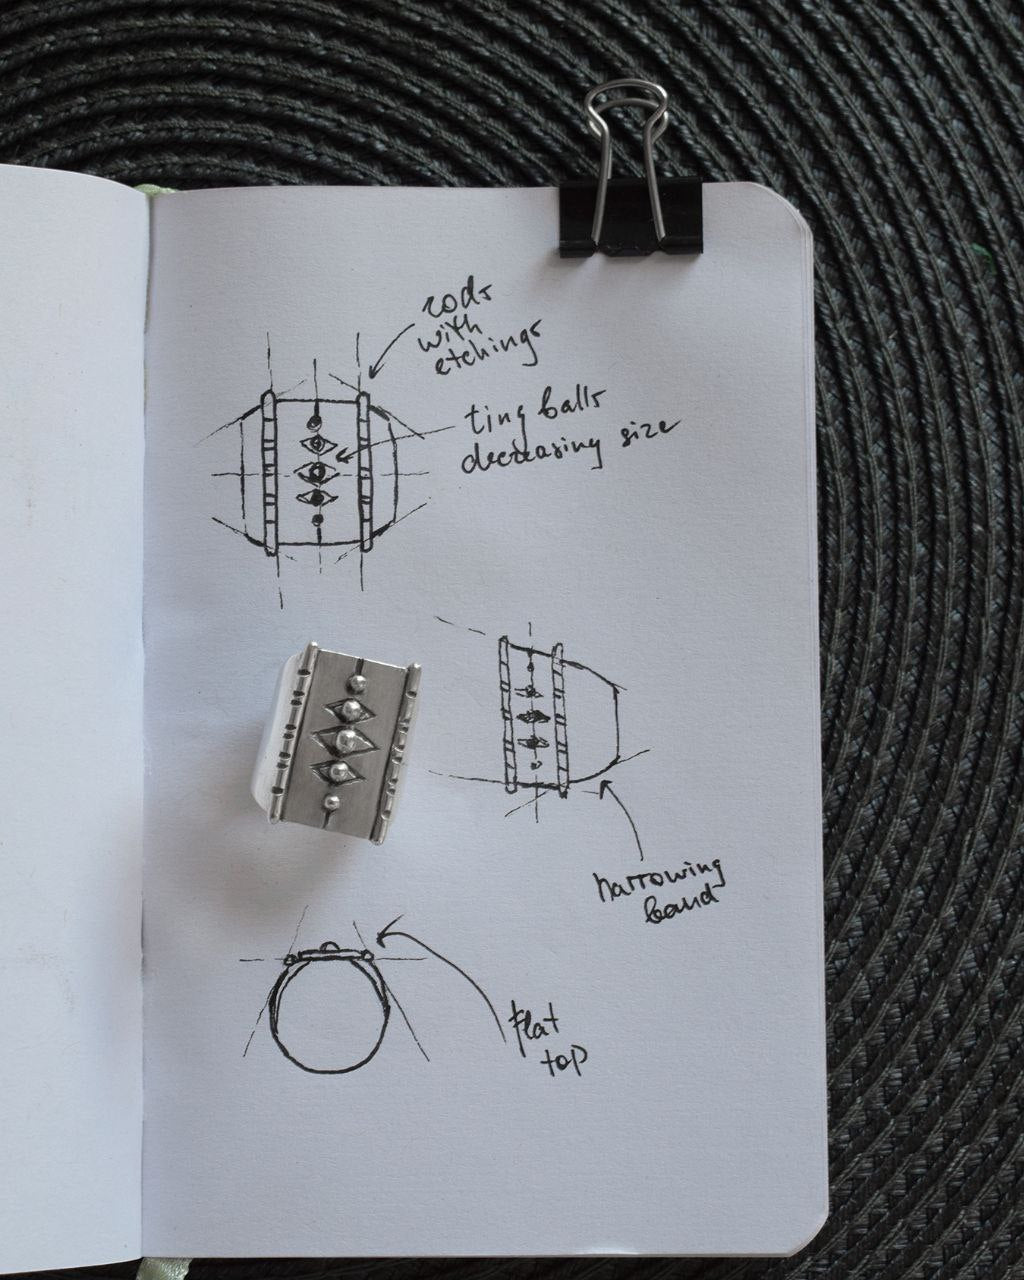 rods
with
etchings
tiny balls
decreasing size
narrowing
band
flat
top